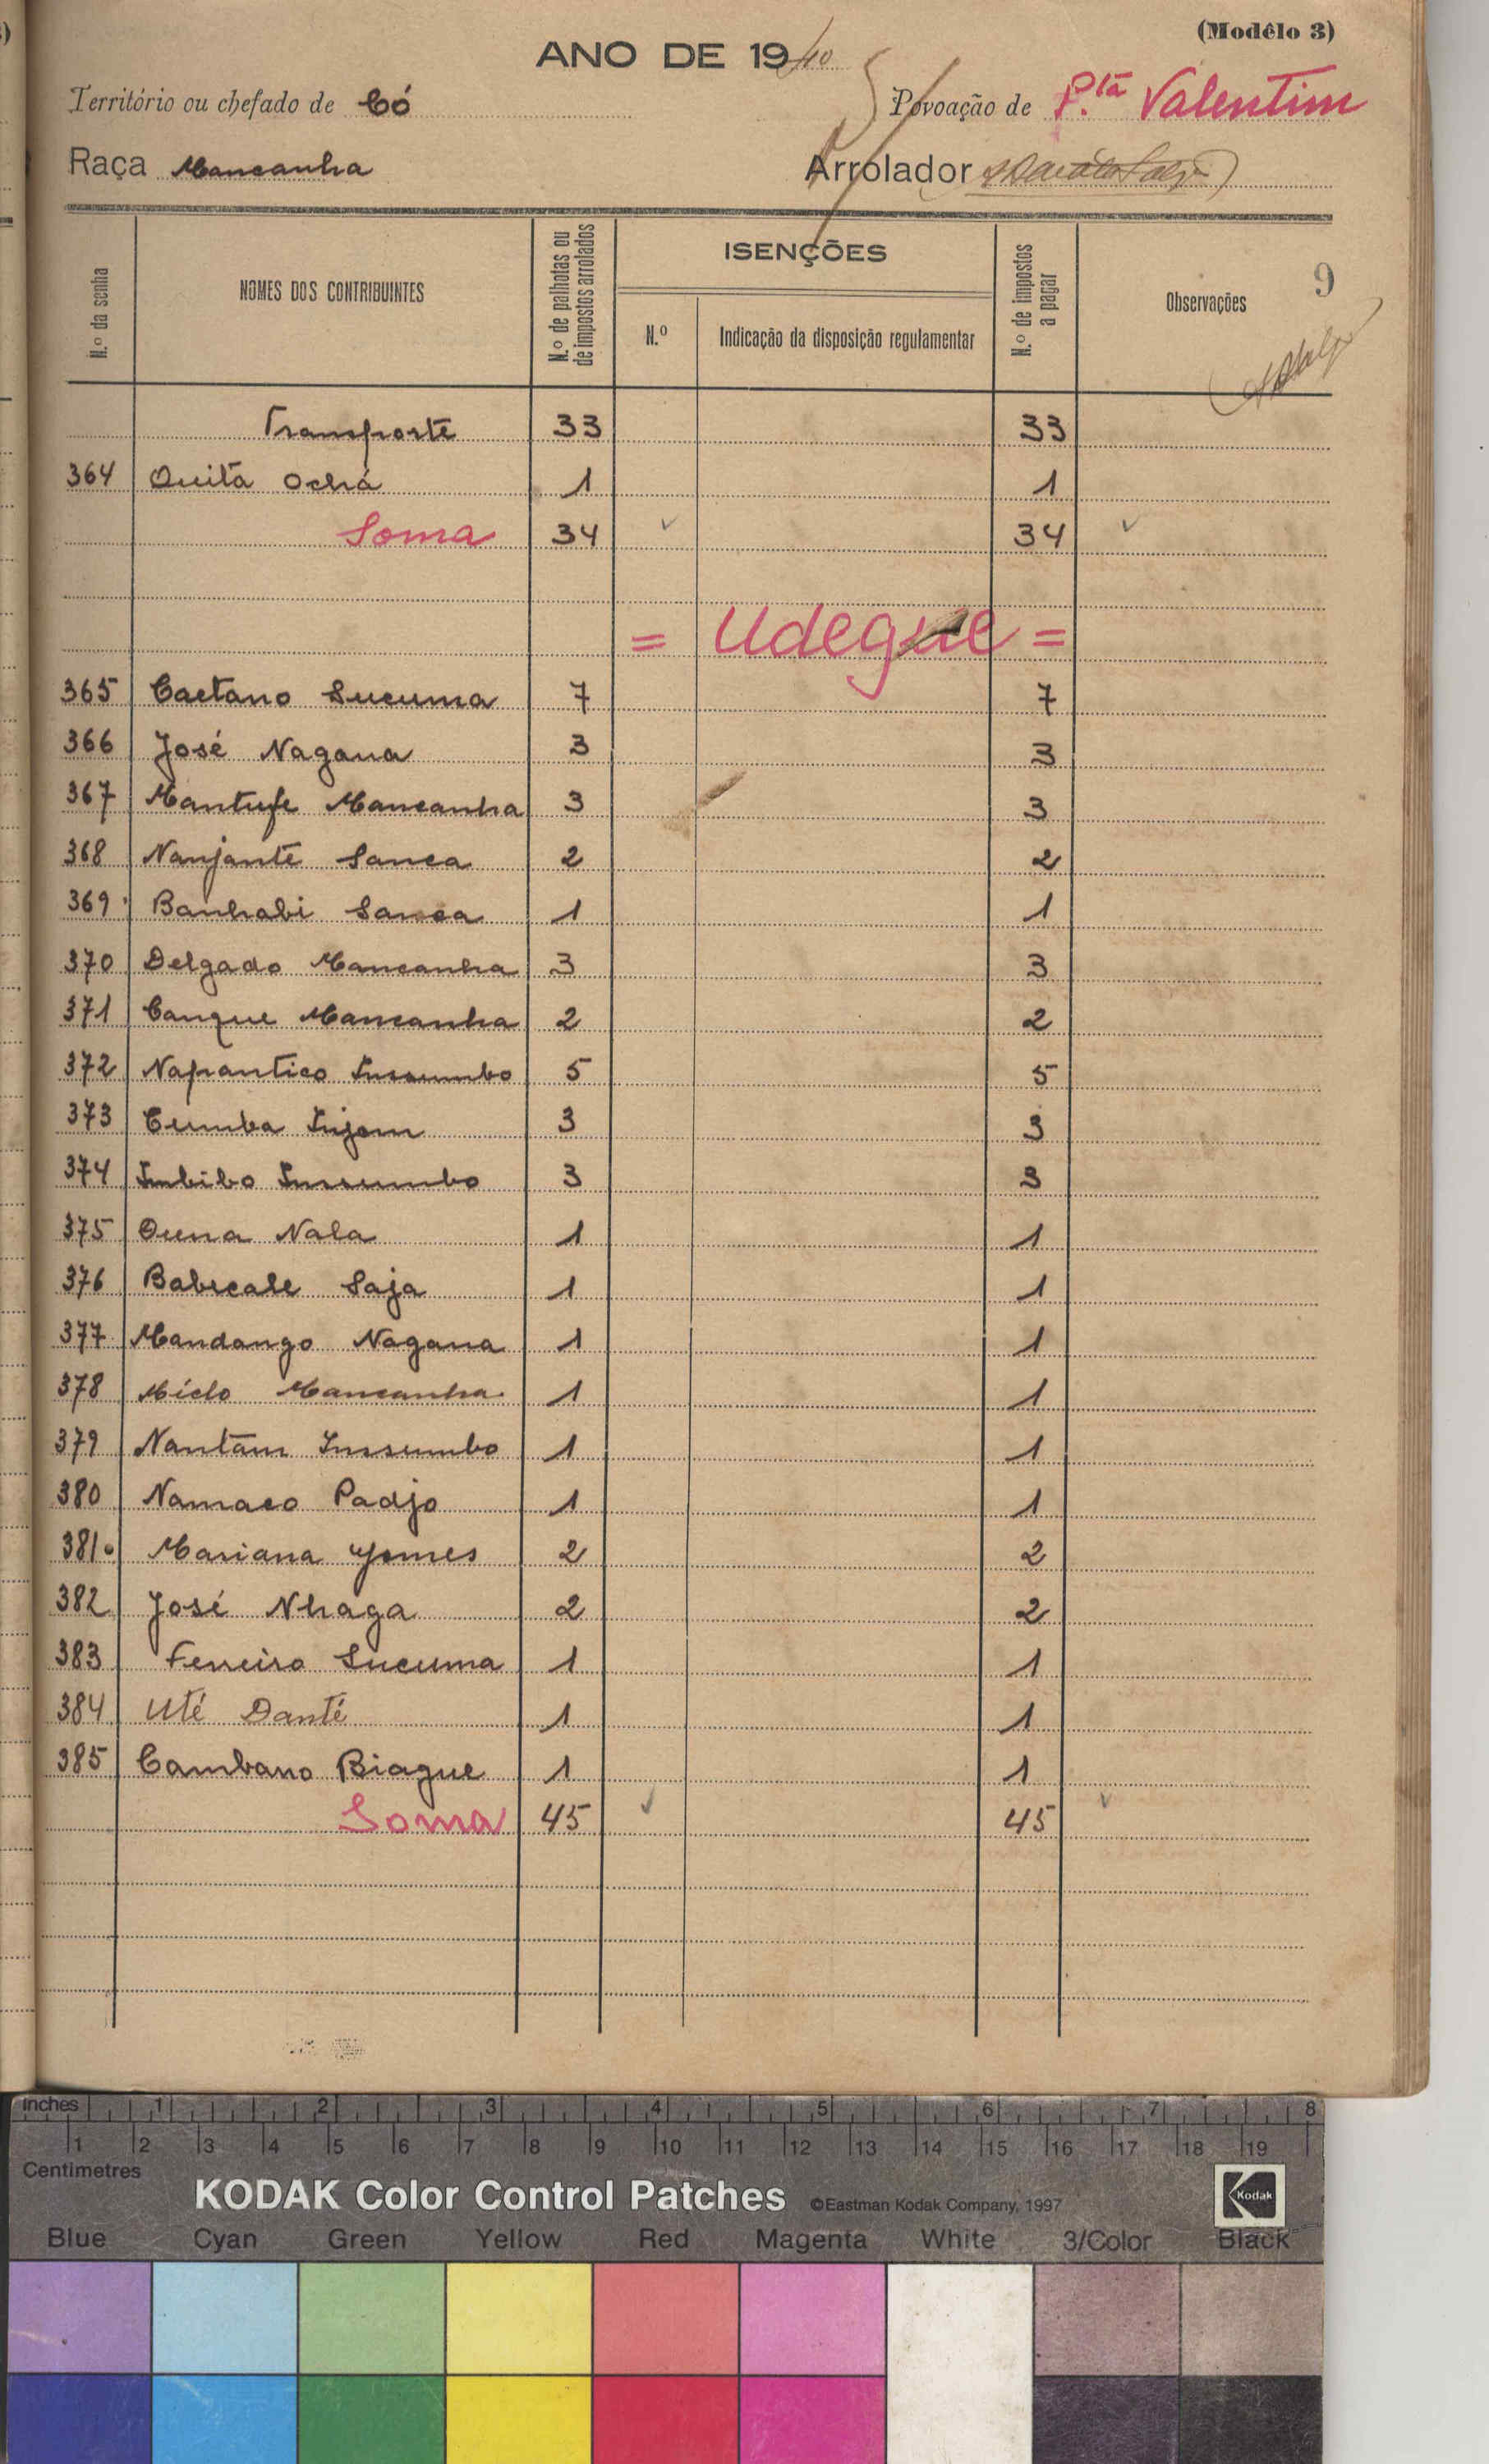 (Modêlo 3)
ANO DE 1940
Território ou chefado de Có
Povoação de P.ta Valentim
Raça Mancanha
Arrolador
N.º da senha
NOMES DOS CONTRIBUINTES
N.º de palhotas ou de impostos arrolados
ISENÇÕES
N.º
Indicação da disposição regulamentar
N.º de impostos a pagar
Observações
9
Transporte 33 33
364 Quitá Ochá 1 1
Soma 34 34
= Udegue =
365 Caetano Sucuma 7 7
366 José Nagana 3 3
367 Mantufe Mancanha 3 3
368 Nanjante Sanca 2 2
369 Banhabi Sanca 1 1
370 Delgado Mancanha 3 3
371 Canque Mancanha 2 2
372 Napantico Inssumbo 5 5
373 Cumba Injom 3 3
374 Imbibo Inssumbo 3 3
375 Ouna Nala 1 1
376 Babicale Saja 1 1
377 Mandango Nagana 1 1
378 Miclo Mancanha 1 1
379 Nantam Inssumbo 1 1
380 Namaco Padjo 1 1
381 Mariana Gomes 2 2
382 José Nhaga 2 2
383 Ferreira Sucuma 1 1
384 Uté Danté 1 1
385 Cambano Biague 1 1
Soma 45 45
Inches 1 2 3 4 5 6 7 8
1 2 3 4 5 6 7 8 9 10 11 12 13 14 15 16 17 18 19
Centimetres
KODAK Color Control Patches ©Eastman Kodak Company, 1997 Kodak
Blue Cyan Green Yellow Red Magenta White 3/Color Black